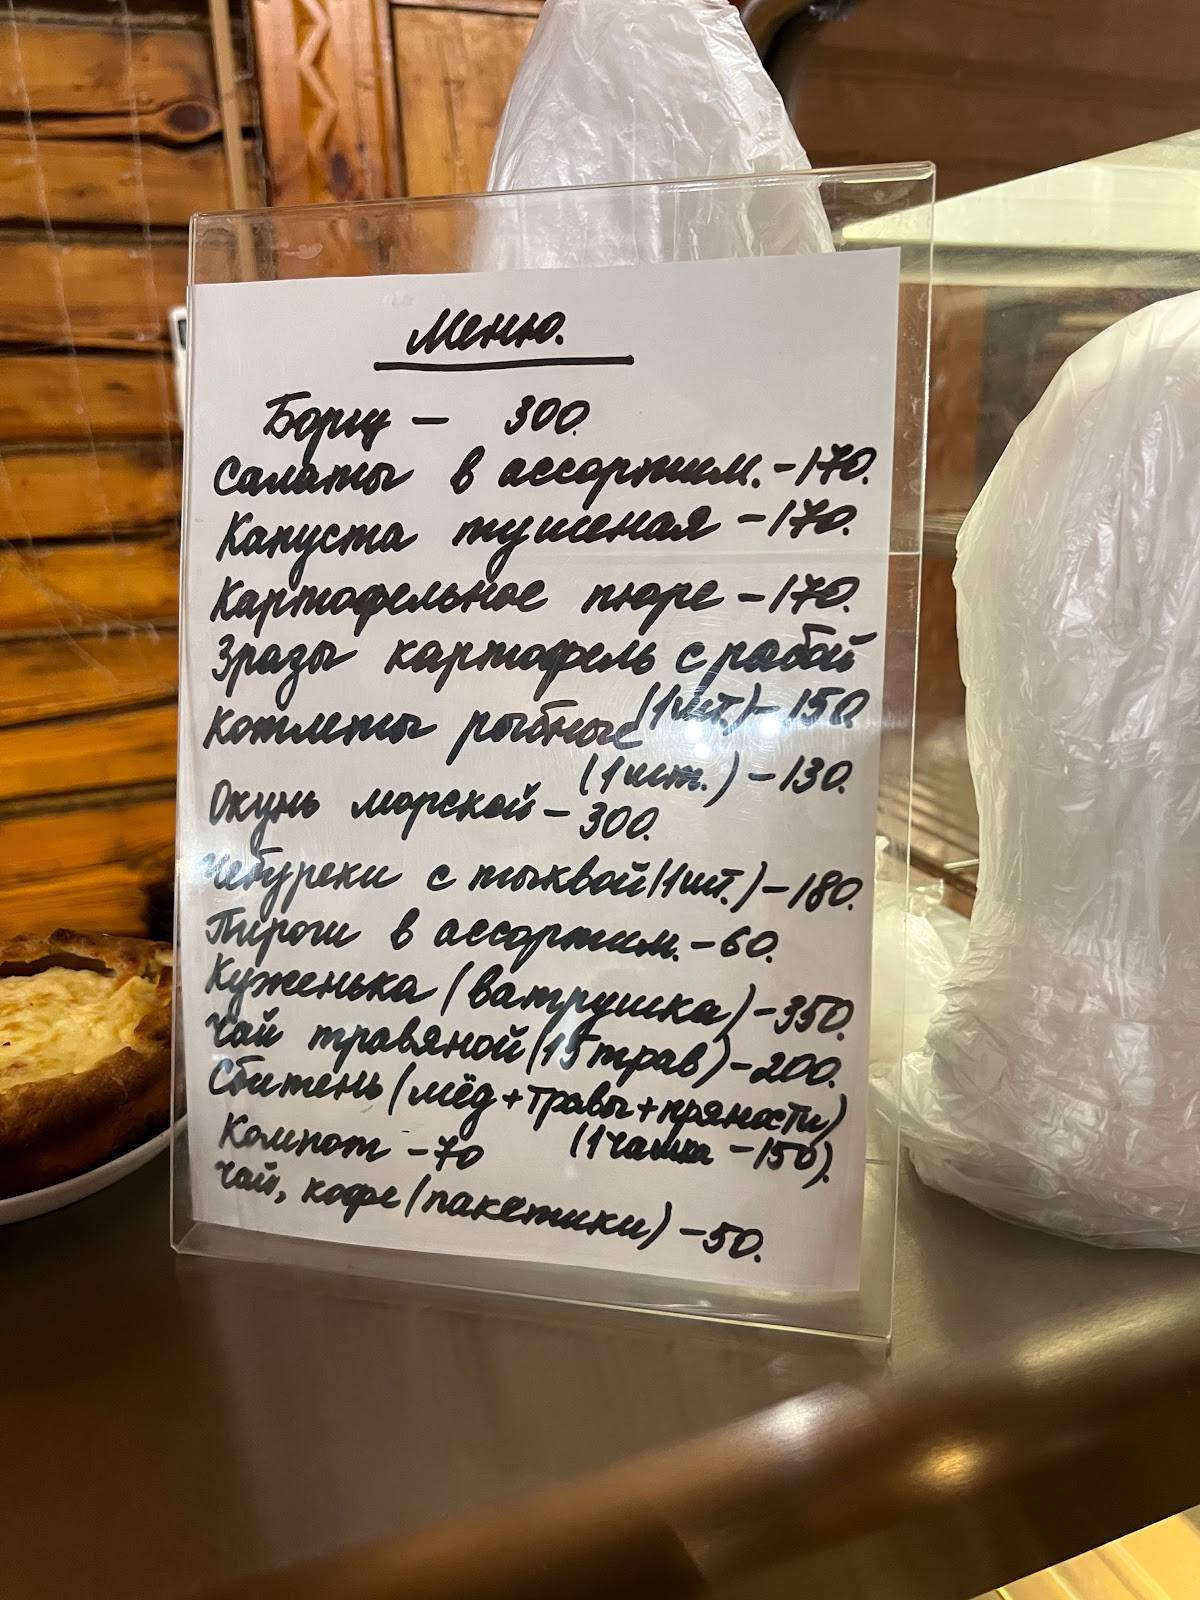 Меню.
Борщ — 300.
Салаты в ассортим. -170.
Капуста тушеная -170.
Картофельное пюре -170.
Зразы картофель с рабой
(1 шт.) - 150.
Котлеты рыбные
(1 шт.) - 130.
Окунь морской - 300.
Чебуреки с тыквой (1 шт.) - 180.
Пироги в ассортим. -60.
Куженька (ватрушка) -350.
Чай травяной (15 трав) -200.
Сбитень (мёд + травы + пряности)
(1 чашка -150).
Компот -70
Чай, кофе (пакетики) -50.